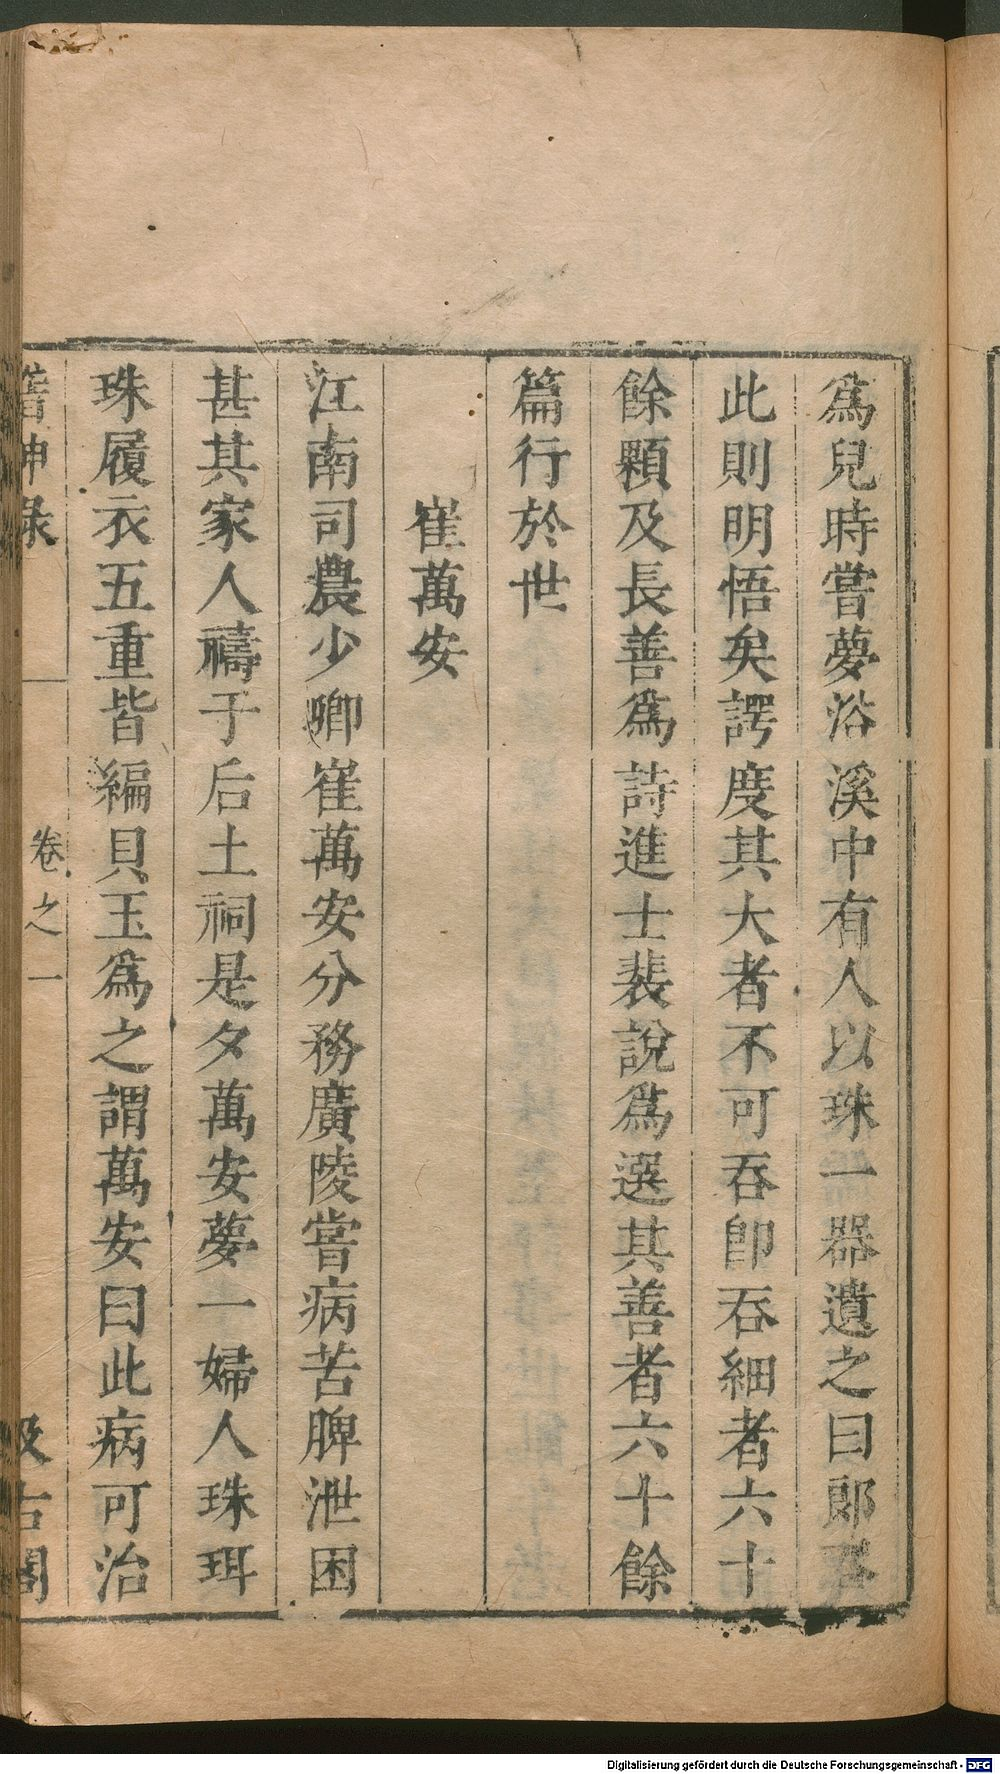 爲兒時嘗夢浴溪中有人以珠一器遺之曰郎吞
此則明悟矣諤度其大者不可吞卽吞細者六十
餘顆及長善爲詩進士裴說爲選其善者六十餘
篇行於世
崔萬安
江南司農少卿崔萬安分務廣陵嘗病苦脾泄困
甚其家人禱于后土祠是夕萬安夢一婦人珠珥
珠履衣五重皆編貝玉爲之謂萬安曰此病可治
稽神录 卷之一 汲古閣
Digitalisierung gefördert durch die Deutsche Forschungsgemeinschaft - DFG